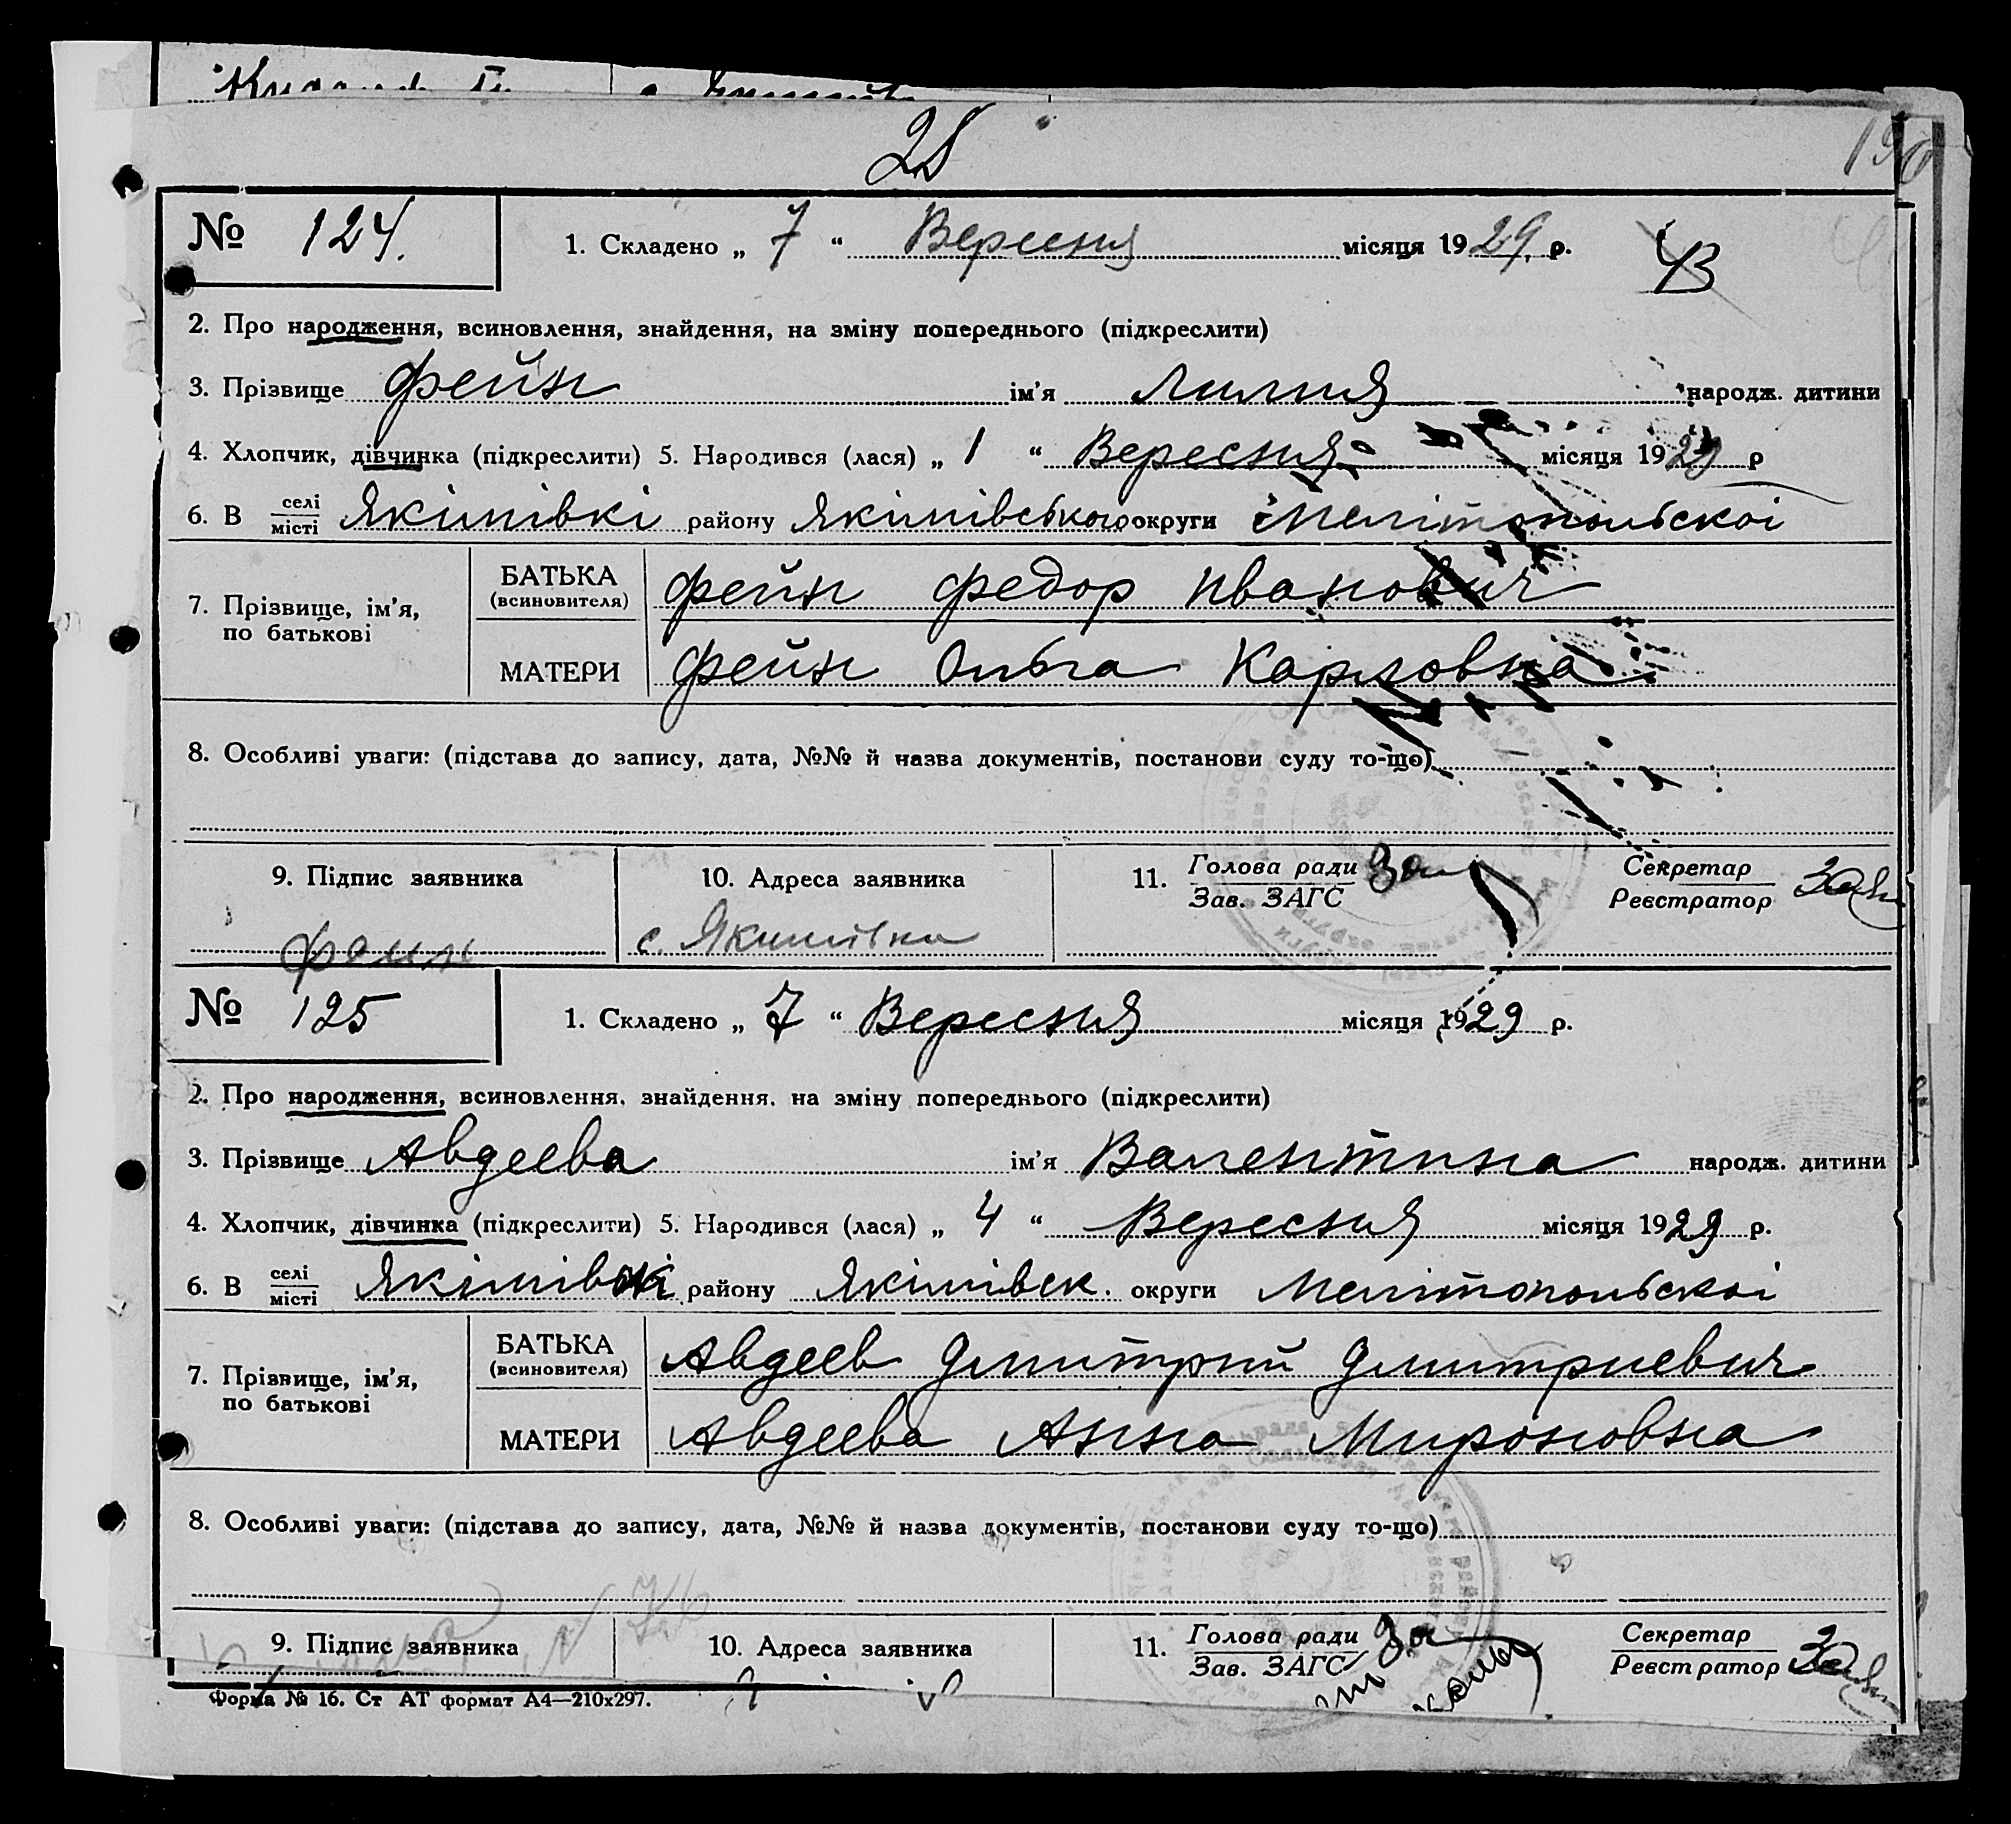 28
190
№ 124. 1. Складено „ 7 “ Вересня місяця 1929. р.
2. Про народження, всиновлення, знайдення, на зміну попереднього (підкреслити)
3. Прізвище Фейн ім'я Лилия народж. дитини
4. Хлопчик, дівчинка (підкреслити) 5. Народився (лася) „ 1 “ Вересня місяця 1929 р
6. В селі/місті Якімівкі району Якімівського округи Мелітопольскоі
7. Прізвище, ім'я, по батькові
БАТЬКА (всиновителя) Фейн Федор Иванович
МАТЕРИ Фейн Ольга Карловна
8. Особливі уваги: (підстава до запису, дата, №№ й назва документів, постанови суду то-що)
9. Підпис заявника 10. Адреса заявника 11. Голова ради/Зав. ЗАГС Секретар/Реєстратор
с. Якимівка
№ 125 1. Складено „ 7 “ Вересня місяця 1929 р.
2. Про народження, всиновлення, знайдення, на зміну попереднього (підкреслити)
3. Прізвище Авдеева ім'я Валентина народж. дитини
4. Хлопчик, дівчинка (підкреслити) 5. Народився (лася) „ 4 “ Вересня місяця 1929 р.
6. В селі/місті Якімівкі району Якімівск. округи Мелітопольскоі
7. Прізвище, ім'я, по батькові
БАТЬКА (всиновителя) Авдеев Дмитрий Дмитриевич
МАТЕРИ Авдеева Анна Мироновна
8. Особливі уваги: (підстава до запису, дата, №№ й назва документів, постанови суду то-що)
9. Підпис заявника 10. Адреса заявника 11. Голова ради/Зав. ЗАГС Секретар/Реєстратор
Форма № 16. Ст АТ формат А4—210х297.